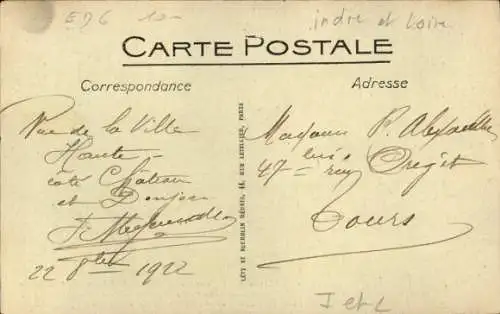 ED6 10-
indre et Loire
CARTE POSTALE
Correspondance
Adresse
Vue de la Ville
Haute -
côté Château
et Donjon
22 8bre 1922
LÉVY ET NEURDEIN RÉUNIS, 44, RUE LETELLIER, PARIS
P. Alexandre
47 rue
Tours
I et L